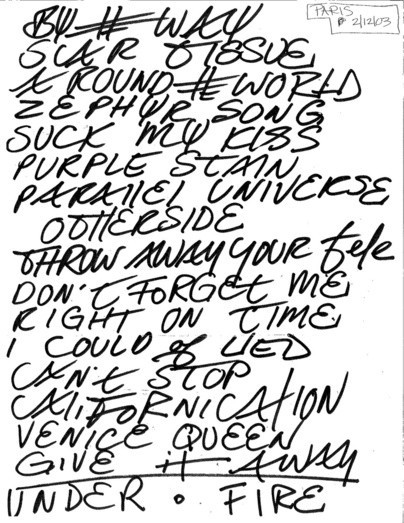 PARIS
2/12/03
BY # WAY
SCAR TISSUE
AROUND # WORLD
ZEPHYR SONG
SUCK MY KISS
PURPLE STAIN
PARAllEl UNIVERSE
OTHERSIDE
THROW AWAY YOUR tele
DON'T FORGET ME
RIGHT ON TIME
I COULD of LIED
CAN'T STOP
CALIFORNICATION
VENICE QUEEN
GIVE it AWAY
UNDER • FIRE